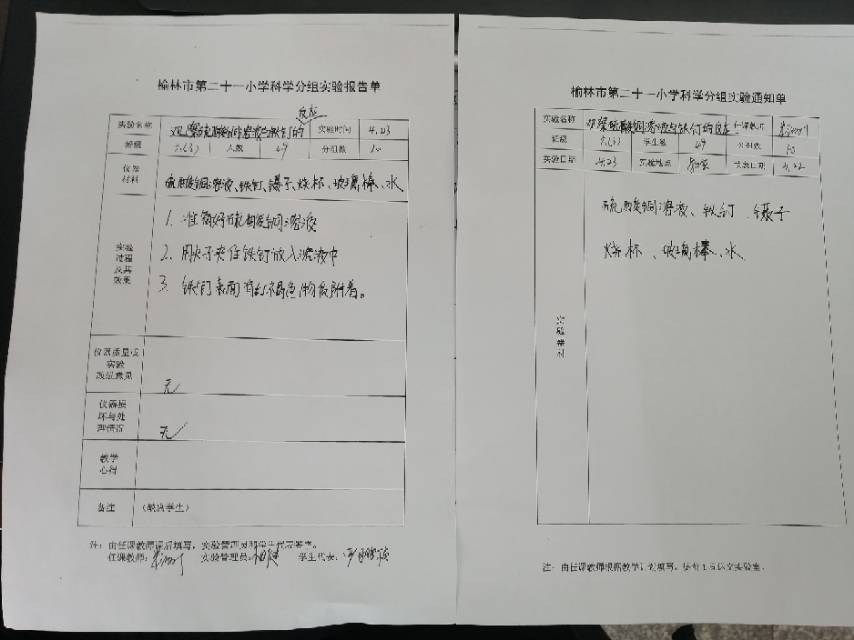 榆林市第二十一小学科学分组实验报告单
反应
实验名称 观察硫酸铜溶液与铁钉的 实验时间 4.23
班级 人数 49 分组数 10
仪器材料 硫酸铜溶液、铁钉、镊子、烧杯、玻璃棒、水
实验过程及其效果
1. 准备好硫酸铜溶液
2. 用夹子夹住铁钉放入溶液中
3. 铁钉表面有红褐色物质附着。
仪器质量及实验改进意见 无
仪器损坏与处理情况 无
教学心得
备注 (缺席学生)
注：由任课教师课后填写，实验管理员和学生代表签字。
任课教师： 实验管理员： 学生代表：
榆林市第二十一小学科学分组实验通知单
实验名称 观察硫酸铜溶液与铁钉的反应 任课教师
班级 学生数 49 分组数 10
实验日期 4.23 实验地点 通知日期 4.22
实验器材
硫酸铜溶液、铁钉、镊子
烧杯、玻璃棒、水
注：由任课教师根据教学计划填写，提前1周送交实验室。